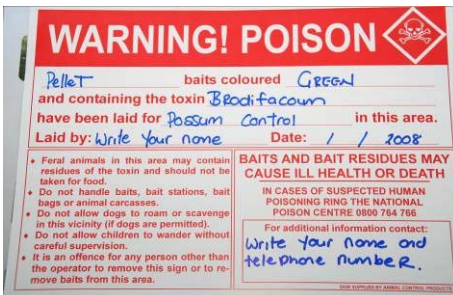 WARNING! POISON
PelleT baits coloured GREEN
and containing the toxin BRodifacoum
have been laid for Possum Control in this area.
Laid by: Write Your name Date: / / 2008
• Feral animals in this area may contain
residues of the toxin and should not be
taken for food.
• Do not handle baits, bait stations, bait
bags or animal carcasses.
• Do not allow dogs to roam or scavenge
in this vicinity (if dogs are permitted).
• Do not allow children to wander without
careful supervision.
• It is an offence for any person other than
the operator to remove this sign or to re-
move baits from this area.
BAITS AND BAIT RESIDUES MAY
CAUSE ILL HEALTH OR DEATH
IN CASES OF SUSPECTED HUMAN
POISONING RING THE NATIONAL
POISON CENTRE 0800 764 766
For additional information contact:
Write Your name and
telephone numbeR.
SIGN SUPPLIED BY ANIMAL CONTROL PRODUCTS